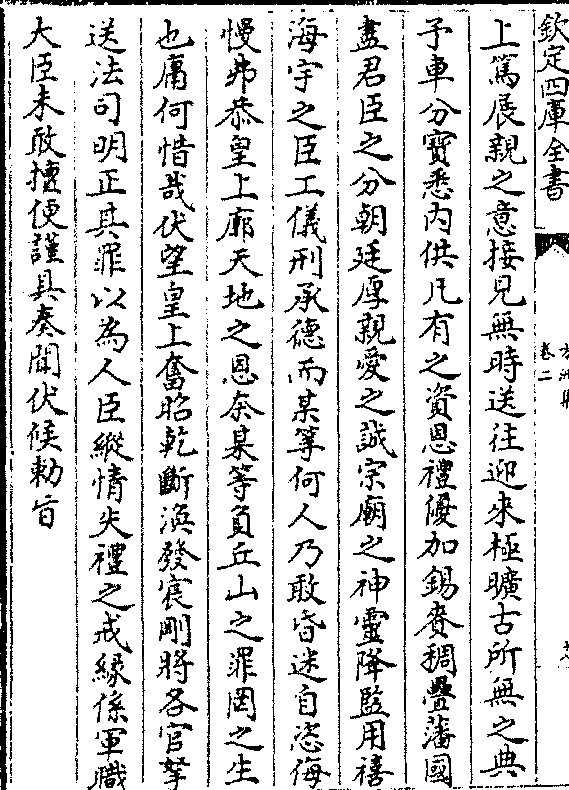 欽定四庫全書
卷二
上篤展親之意接見無時送往迎來極曠古所無之典
予車分寳悉内供凡有之資恩禮優加錫賚稠疊藩國
盡君臣之分朝廷厚親愛之誠宗廟之神靈降監用禧
海宇之臣工儀刑承德而某等何人乃敢昏迷自恣侮
慢弗恭皇上廓天地之恩奈某等負丘山之罪罔之生
也庸何惜哉伏望皇上奮昭乾斷渙發宸剛將各官拏
送法司明正其罪以為人臣縱情失禮之戒緣係軍職
大臣未敢擅便謹具奏聞伏候勅旨